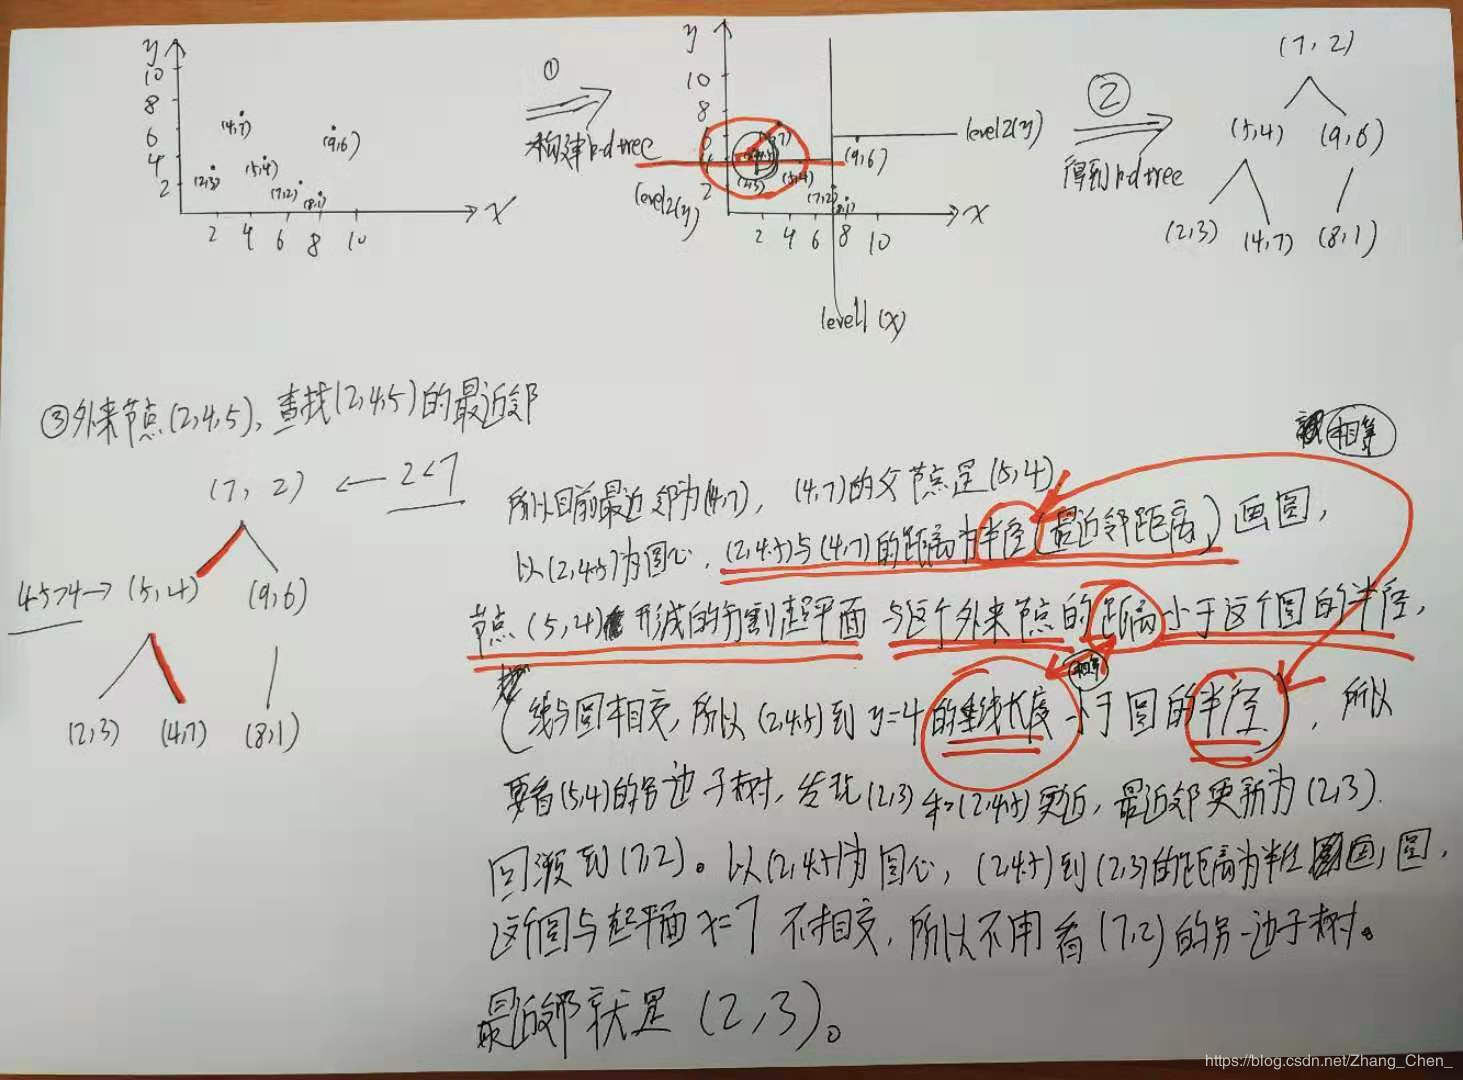 y
10
8
6
4
2
(4,7)
(9,6)
(2,3)
(5,4)
(7,2)
(8,1)
2 4 6 8 10
x
①
构建kdtree
y
10
8
6
4
2
level2(y)
level2(y)
(9,6)
(2,3)
(5,4)
(7,2)
(8,1)
2 4 6 8 10
x
level1 (x)
②
得到kdtree
(7,2)
(5,4) (9,6)
(2,3) (4,7) (8,1)
③外来节点(2,4,5),查找(2,4,5)的最近邻
(7,2) ← 2<7
4.5>4→ (5,4) (9,6)
(2,3) (4,7) (8,1)
相等
所以目前最近邻为(4,7), (4,7)的父节点是(5,4)
以(2,4.5)为圆心,(2,4.5)与(4,7)的距离为半径(最近邻距离)画圆,
节点(5,4) 形成的分割超平面 与这个外来节点的距离小于这个圆的半径,
相等
(线与圆相交,所以(2,4.5)到y=4的垂线长度小于圆的半径),所以
要看(5,4)的另边子树,发现(2,3)和(2,4.5)更近,最近邻更新为(2,3).
回溯到(7,2)。以(2,4.5)为圆心,(2,4.5)到(2,3)的距离为半径画圆,
这个圆与超平面x=7不相交,所以不用看(7,2)的另一边子树。
最近邻就是(2,3)。
https://blog.csdn.net/Zhang_Chen_